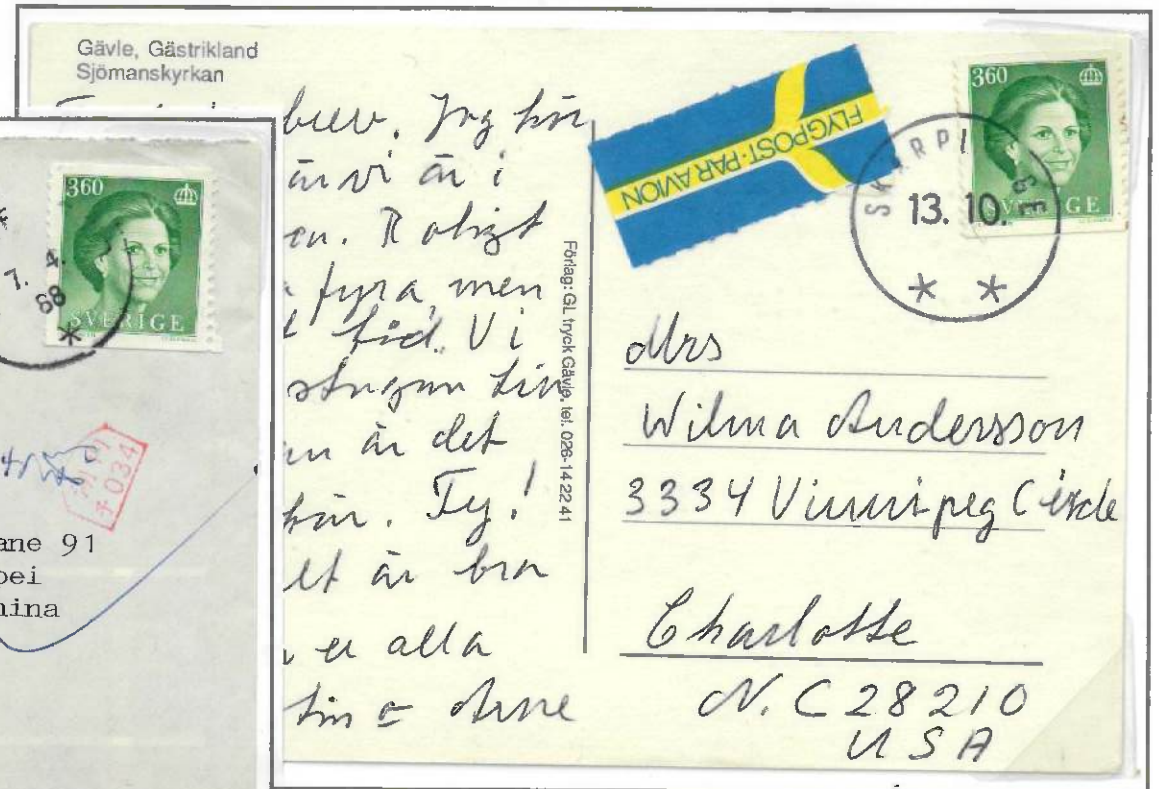 Gävle, Gästrikland
Sjömanskyrkan
brev. Jag hör
är vi är i
en. Roligt
fyra, men
tid. Vi
stugan
är det
här. Ty!
är bra
er alla
o Arne
Förlag: GL tryck Gävle, tel. 026-14 22 41
FLYGPOST·PAR AVION
360
SVERIGE
SKÄRPLINGE
13. 10.
* *
Mrs
Wilma Andersson
3334 Vinnipeg Circle
Charlotte
N. C 28210
USA
360
SVERIGE
7. 4.
88
*
034
ane 91
pei
hina